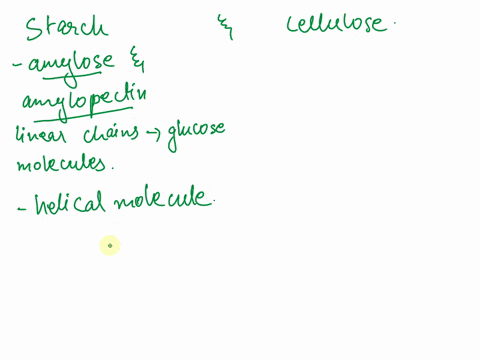 Starch & cellulose.
- amylose &
amylopectin
linear chains → glucose
molecules.
- helical molecule.